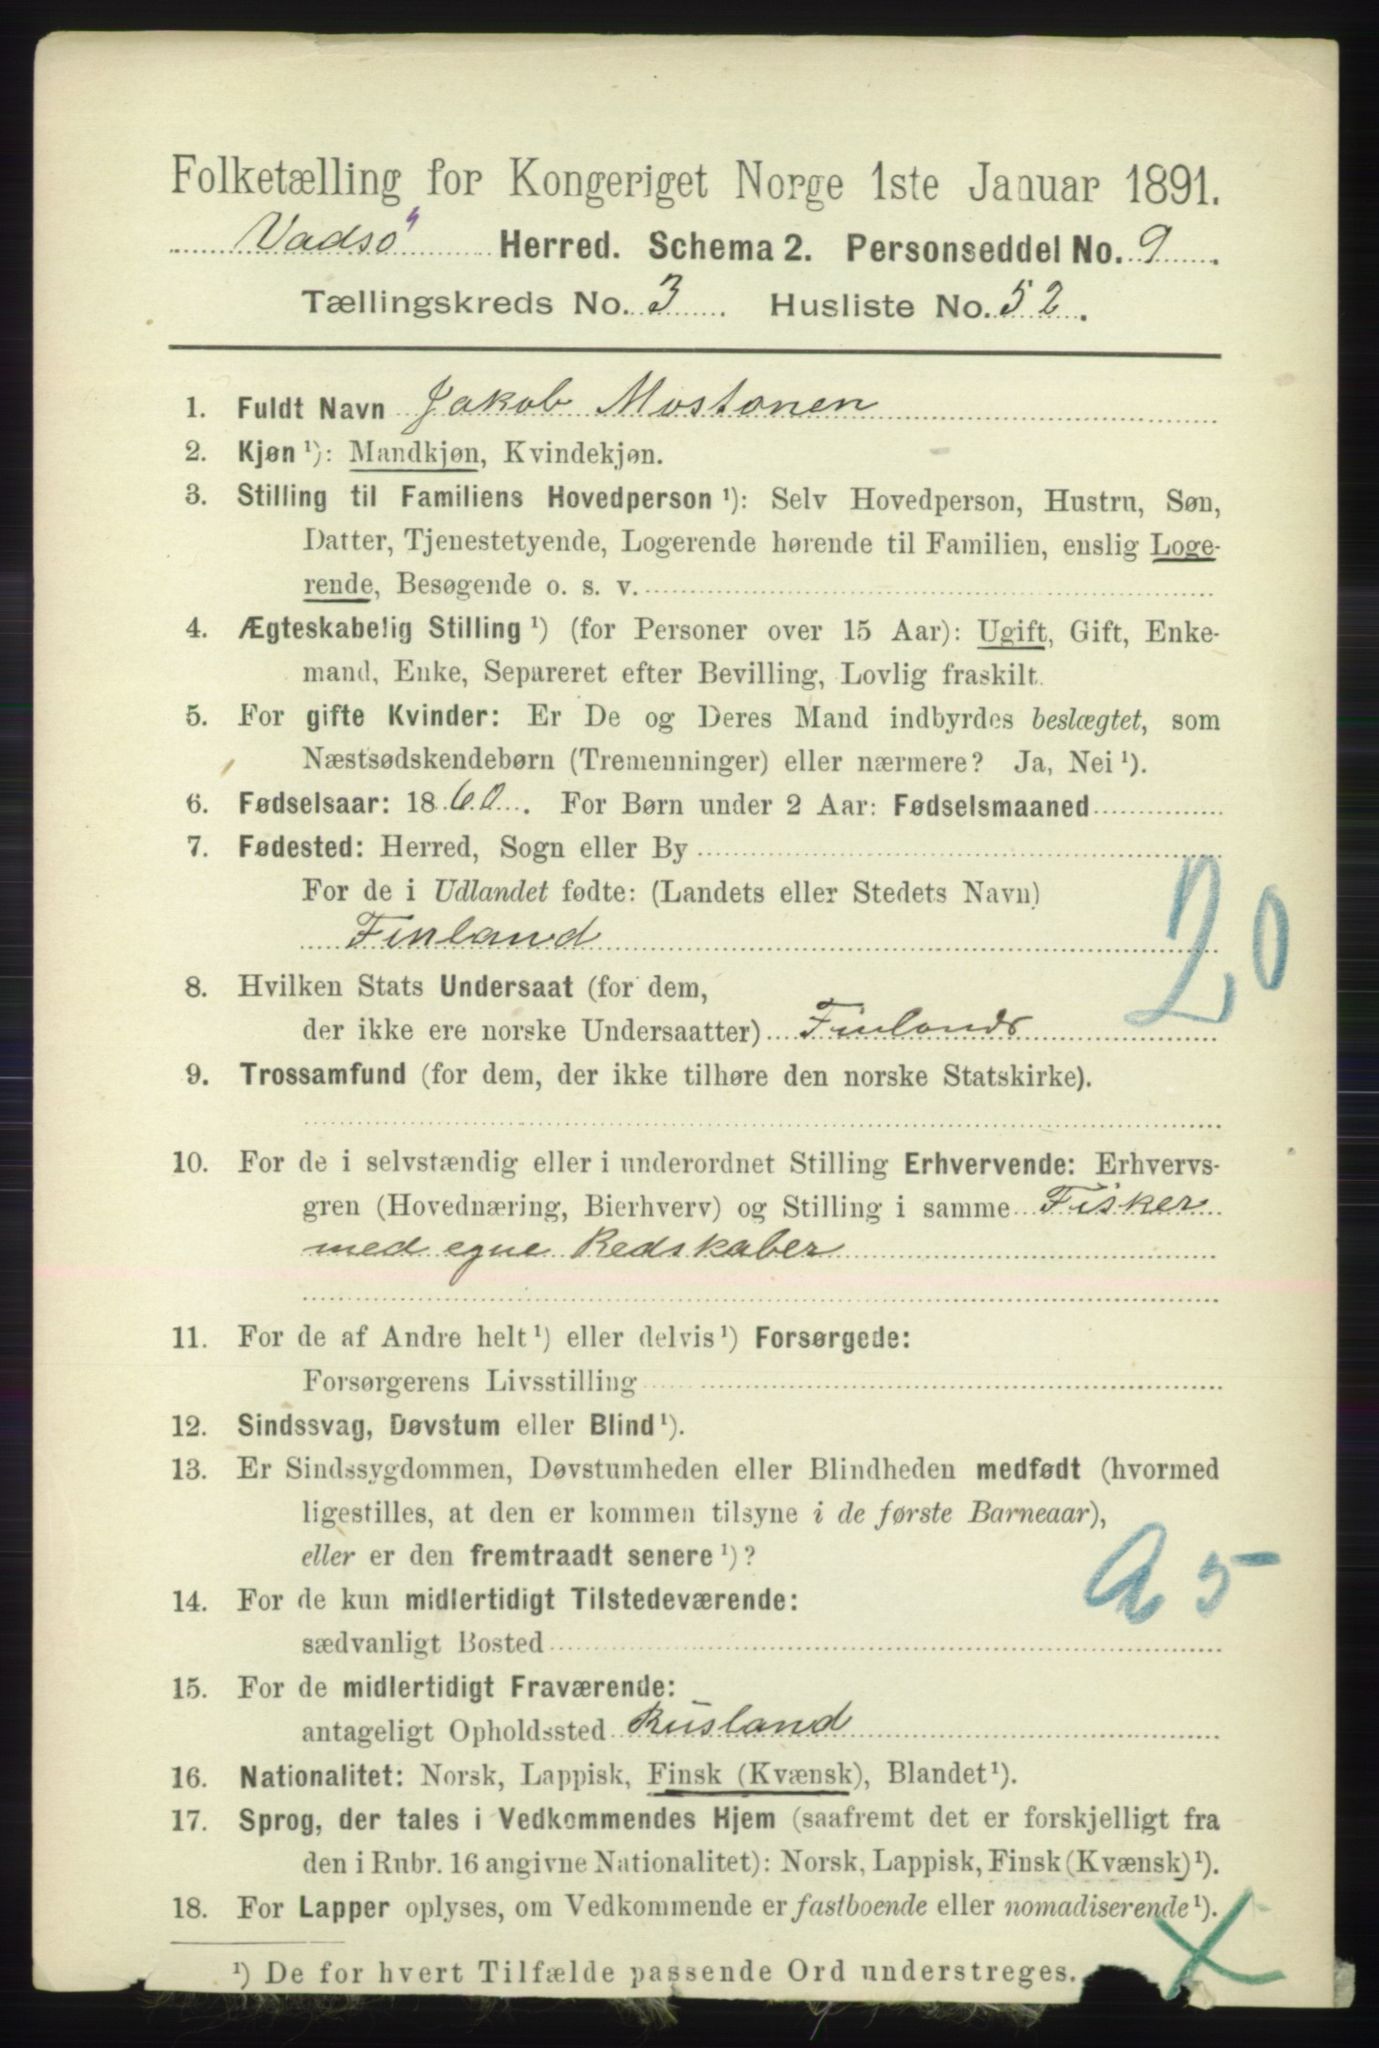 Folketælling for Kongeriget Norge 1ste Januar 1891.
Vadsö Herred. Schema 2. Personseddel No. 9.
Tællingskreds No. 3 Husliste No. 52.
1. Fuldt Navn Jakob Mostonen
2. Kjøn ¹): Mandkjøn, Kvindekjøn.
3. Stilling til Familiens Hovedperson ¹): Selv Hovedperson, Hustru, Søn,
Datter, Tjenestetyende, Logerende hørende til Familien, enslig Loge-
rende, Besøgende o. s. v.
4. Ægteskabelig Stilling ¹) (for Personer over 15 Aar): Ugift, Gift, Enke-
mand, Enke, Separeret efter Bevilling, Lovlig fraskilt.
5. For gifte Kvinder: Er De og Deres Mand indbyrdes beslægtet, som
Næstsødskendebørn (Tremenninger) eller nærmere? Ja, Nei ¹).
6. Fødselsaar: 1860. For Børn under 2 Aar: Fødselsmaaned
7. Fødested: Herred, Sogn eller By
For de i Udlandet fødte: (Landets eller Stedets Navn)
Finland
20
8. Hvilken Stats Undersaat (for dem,
der ikke ere norske Undersaatter) Finlands
9. Trossamfund (for dem, der ikke tilhøre den norske Statskirke).
10. For de i selvstændig eller i underordnet Stilling Erhvervende: Erhvervs-
gren (Hovednæring, Bierhverv) og Stilling i samme Fisker
med egne Redskaber
11. For de af Andre helt ¹) eller delvis ¹) Forsørgede:
Forsørgerens Livsstilling
12. Sindssvag, Døvstum eller Blind ¹).
13. Er Sindssygdommen, Døvstumheden eller Blindheden medfødt (hvormed
ligestilles, at den er kommen tilsyne i de første Barneaar),
eller er den fremtraadt senere ¹)?
a 5
14. For de kun midlertidigt Tilstedeværende:
sædvanligt Bosted
15. For de midlertidigt Fraværende:
antageligt Opholdssted Rusland
16. Nationalitet: Norsk, Lappisk, Finsk (Kvænsk), Blandet ¹).
17. Sprog, der tales i Vedkommendes Hjem (saafremt det er forskjelligt fra
den i Rubr. 16 angivne Nationalitet): Norsk, Lappisk, Finsk (Kvænsk) ¹).
18. For Lapper oplyses, om Vedkommende er fastboende eller nomadiserende ¹).
¹) De for hvert Tilfælde passende Ord understreges.